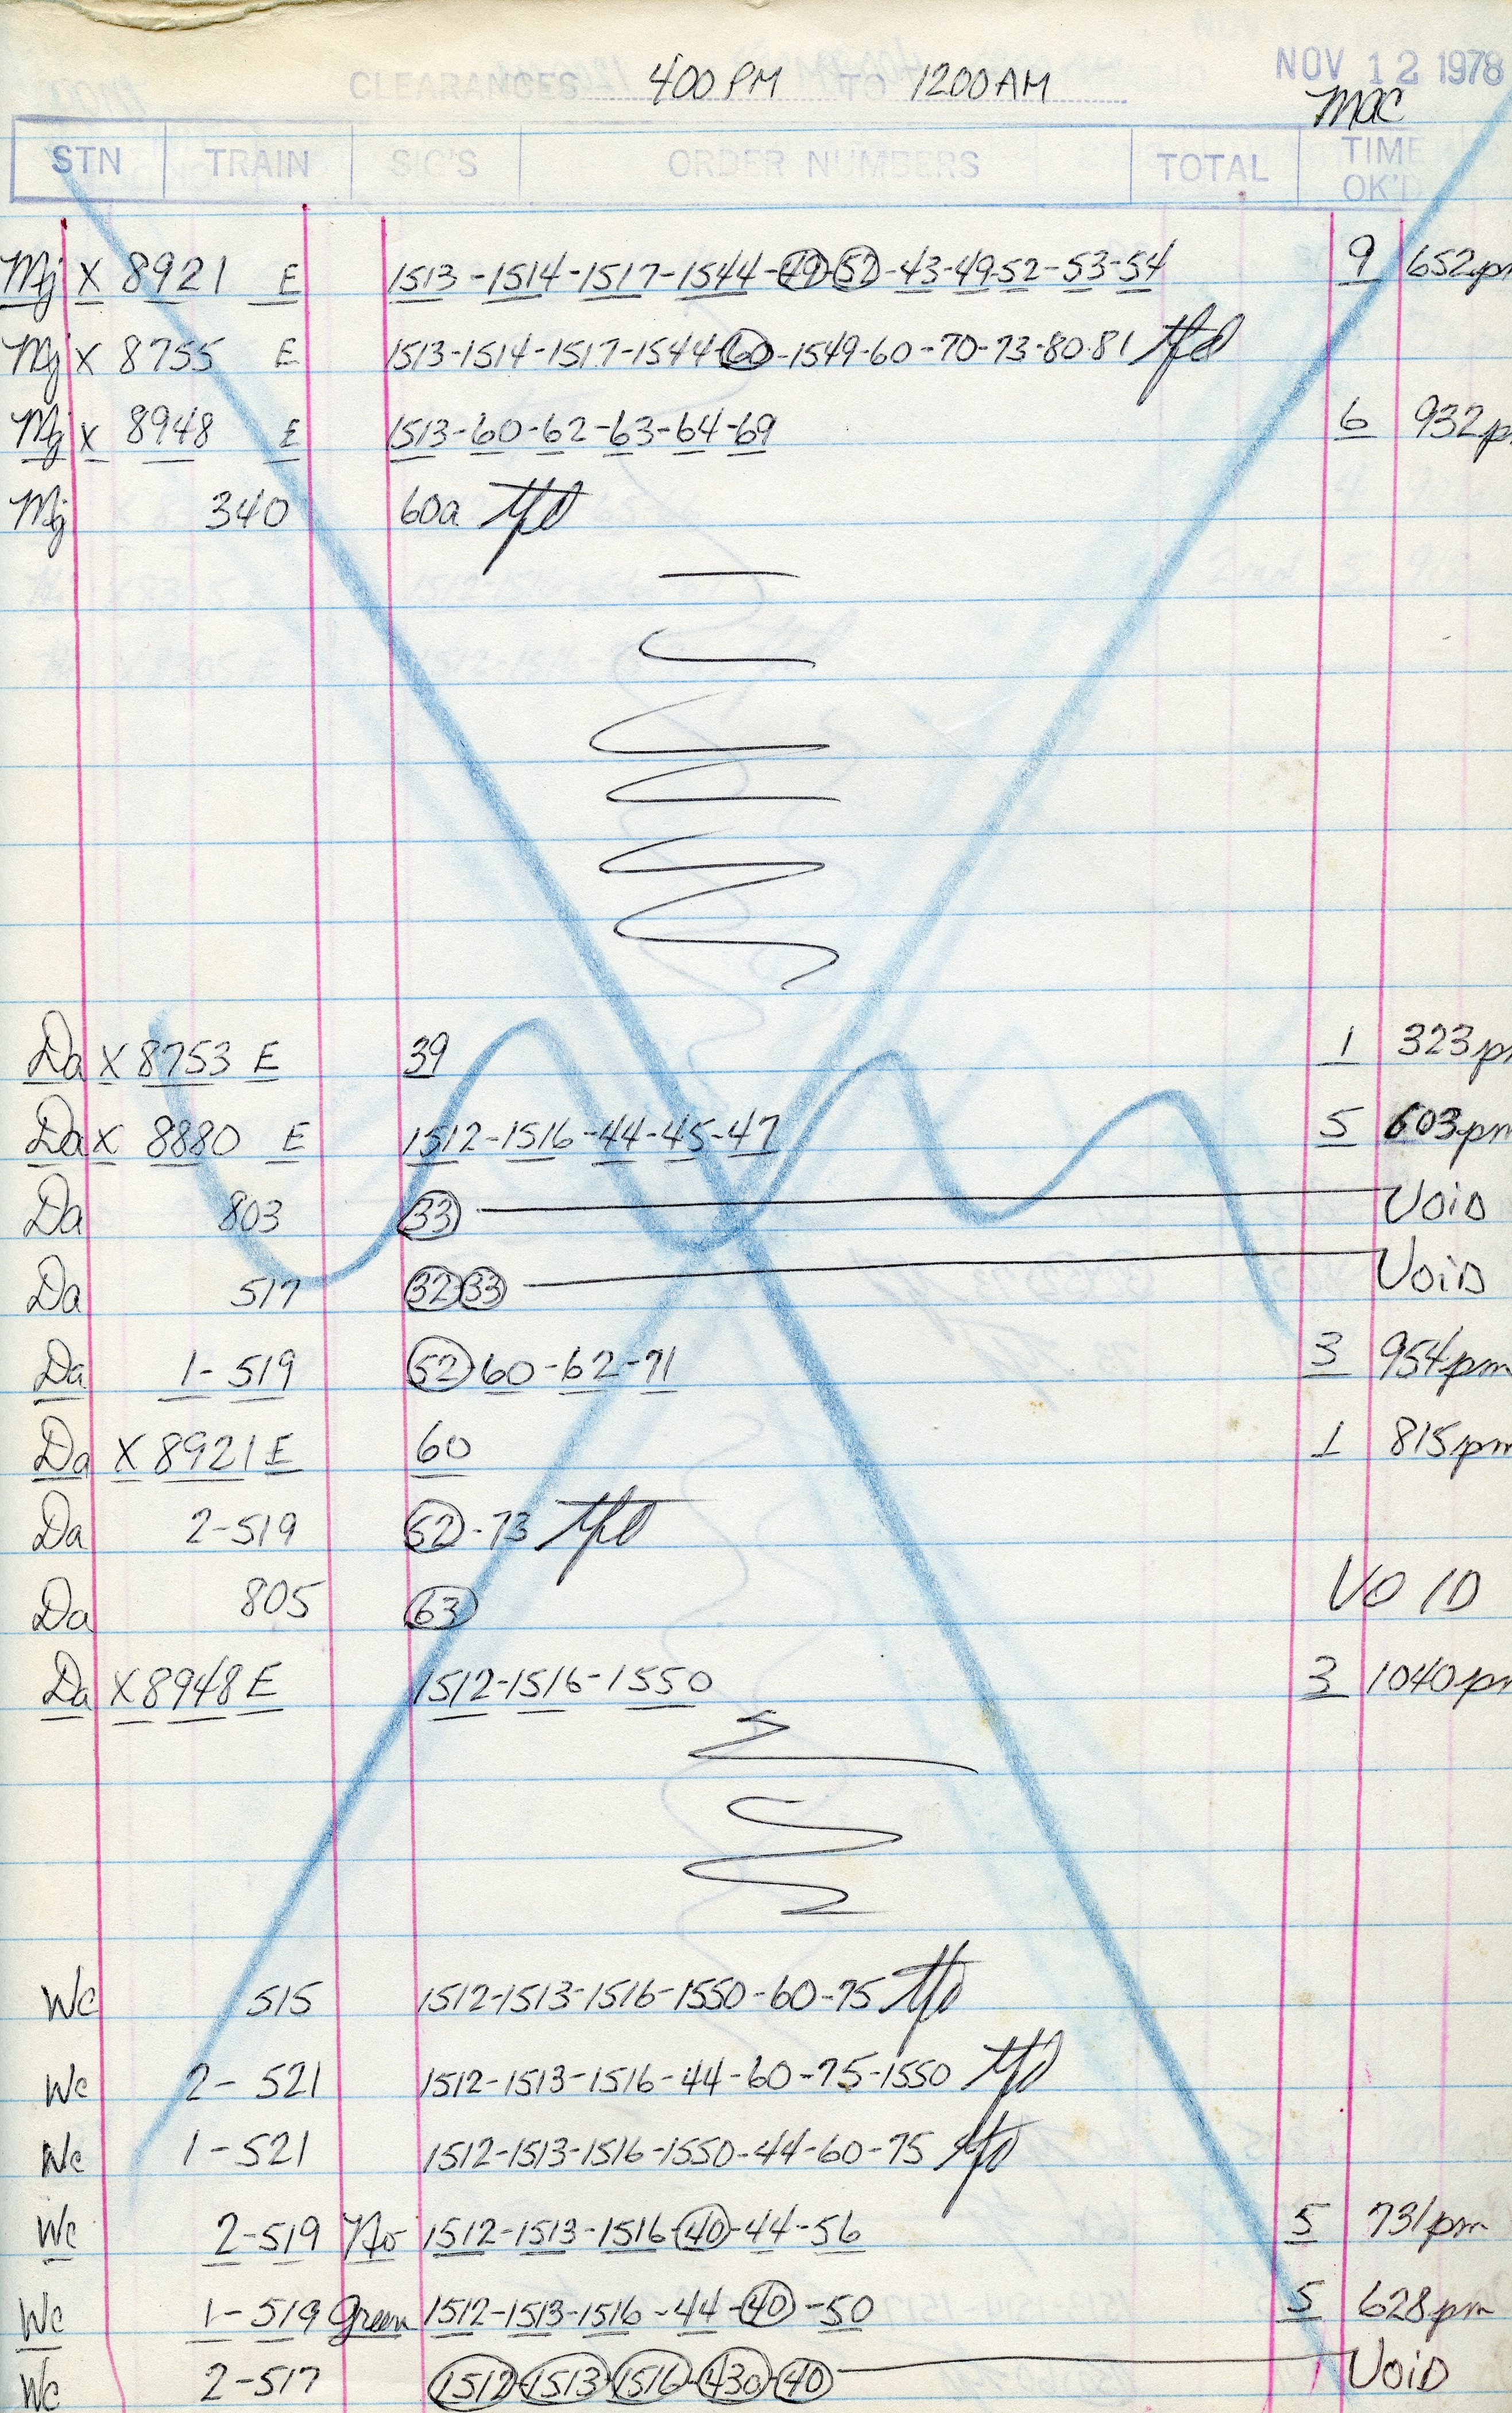 NOV 12 1978
CLEARANCES 400 PM TO 1200 AM
mac
STN TRAIN SIG'S ORDER NUMBERS TOTAL TIME OK'D
Mj X 8921 E 1513-1514-1517-1544-49-52-43-49-52-53-54 9 652pm
Mj X 8755 E 1513-1514-1517-1544-60-1549-60-70-73-80-81 tfd
Mj X 8948 E 1513-60-62-63-64-69 6 932p
Mj 340 60a tfd
Da X 8753 E 39 1 323pm
Da X 8880 E 1512-1516-44-45-47 5 603pm
Da 803 33 Void
Da 517 32 33 Void
Da 1-519 52-60-62-71 3 954pm
Da X 8921 E 60 1 815pm
Da 2-519 52-73 tfd
Da 805 63 VOID
Da X 8948 E 1512-1516-1550 3 1040pm
Wc 515 1512-1513-1516-1550-60-75 tfd
Wc 2-521 1512-1513-1516-44-60-75-1550 tfd
Wc 1-521 1512-1513-1516-1550-44-60-75 tfd
Wc 2-519 No 1512-1513-1516-40-44-56 5 731pm
Wc 1-519 Green 1512-1513-1516-44-40-50 5 628pm
Wc 2-517 1512-1513-1516-430-40 Void